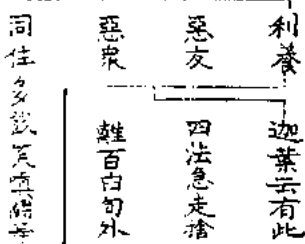 利養
惡友
惡衆
同住多戲笑嗔
迦葉云有此
四法急走捨
離百由旬外